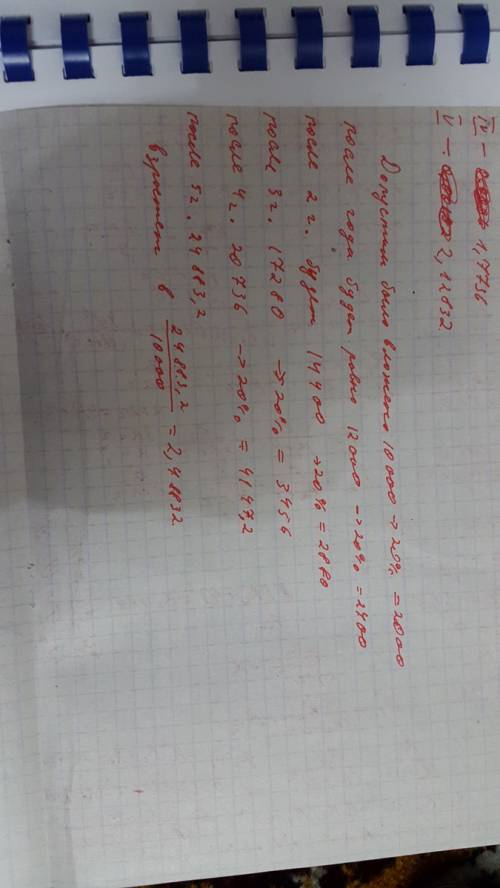 IV - 1,7736
V - 2,12832
Допустим было вложено 10 000 → 20% = 2000
после года будет равно 12000 → 20% = 2400
после 2 г. будет 14400 → 20% = 2880
после 3 г. 17280 → 20% = 3456
после 4 г. 20736 → 20% = 4147,2
после 5 г. 24883,2
взрастет в 24883,2/10000 = 2,48832